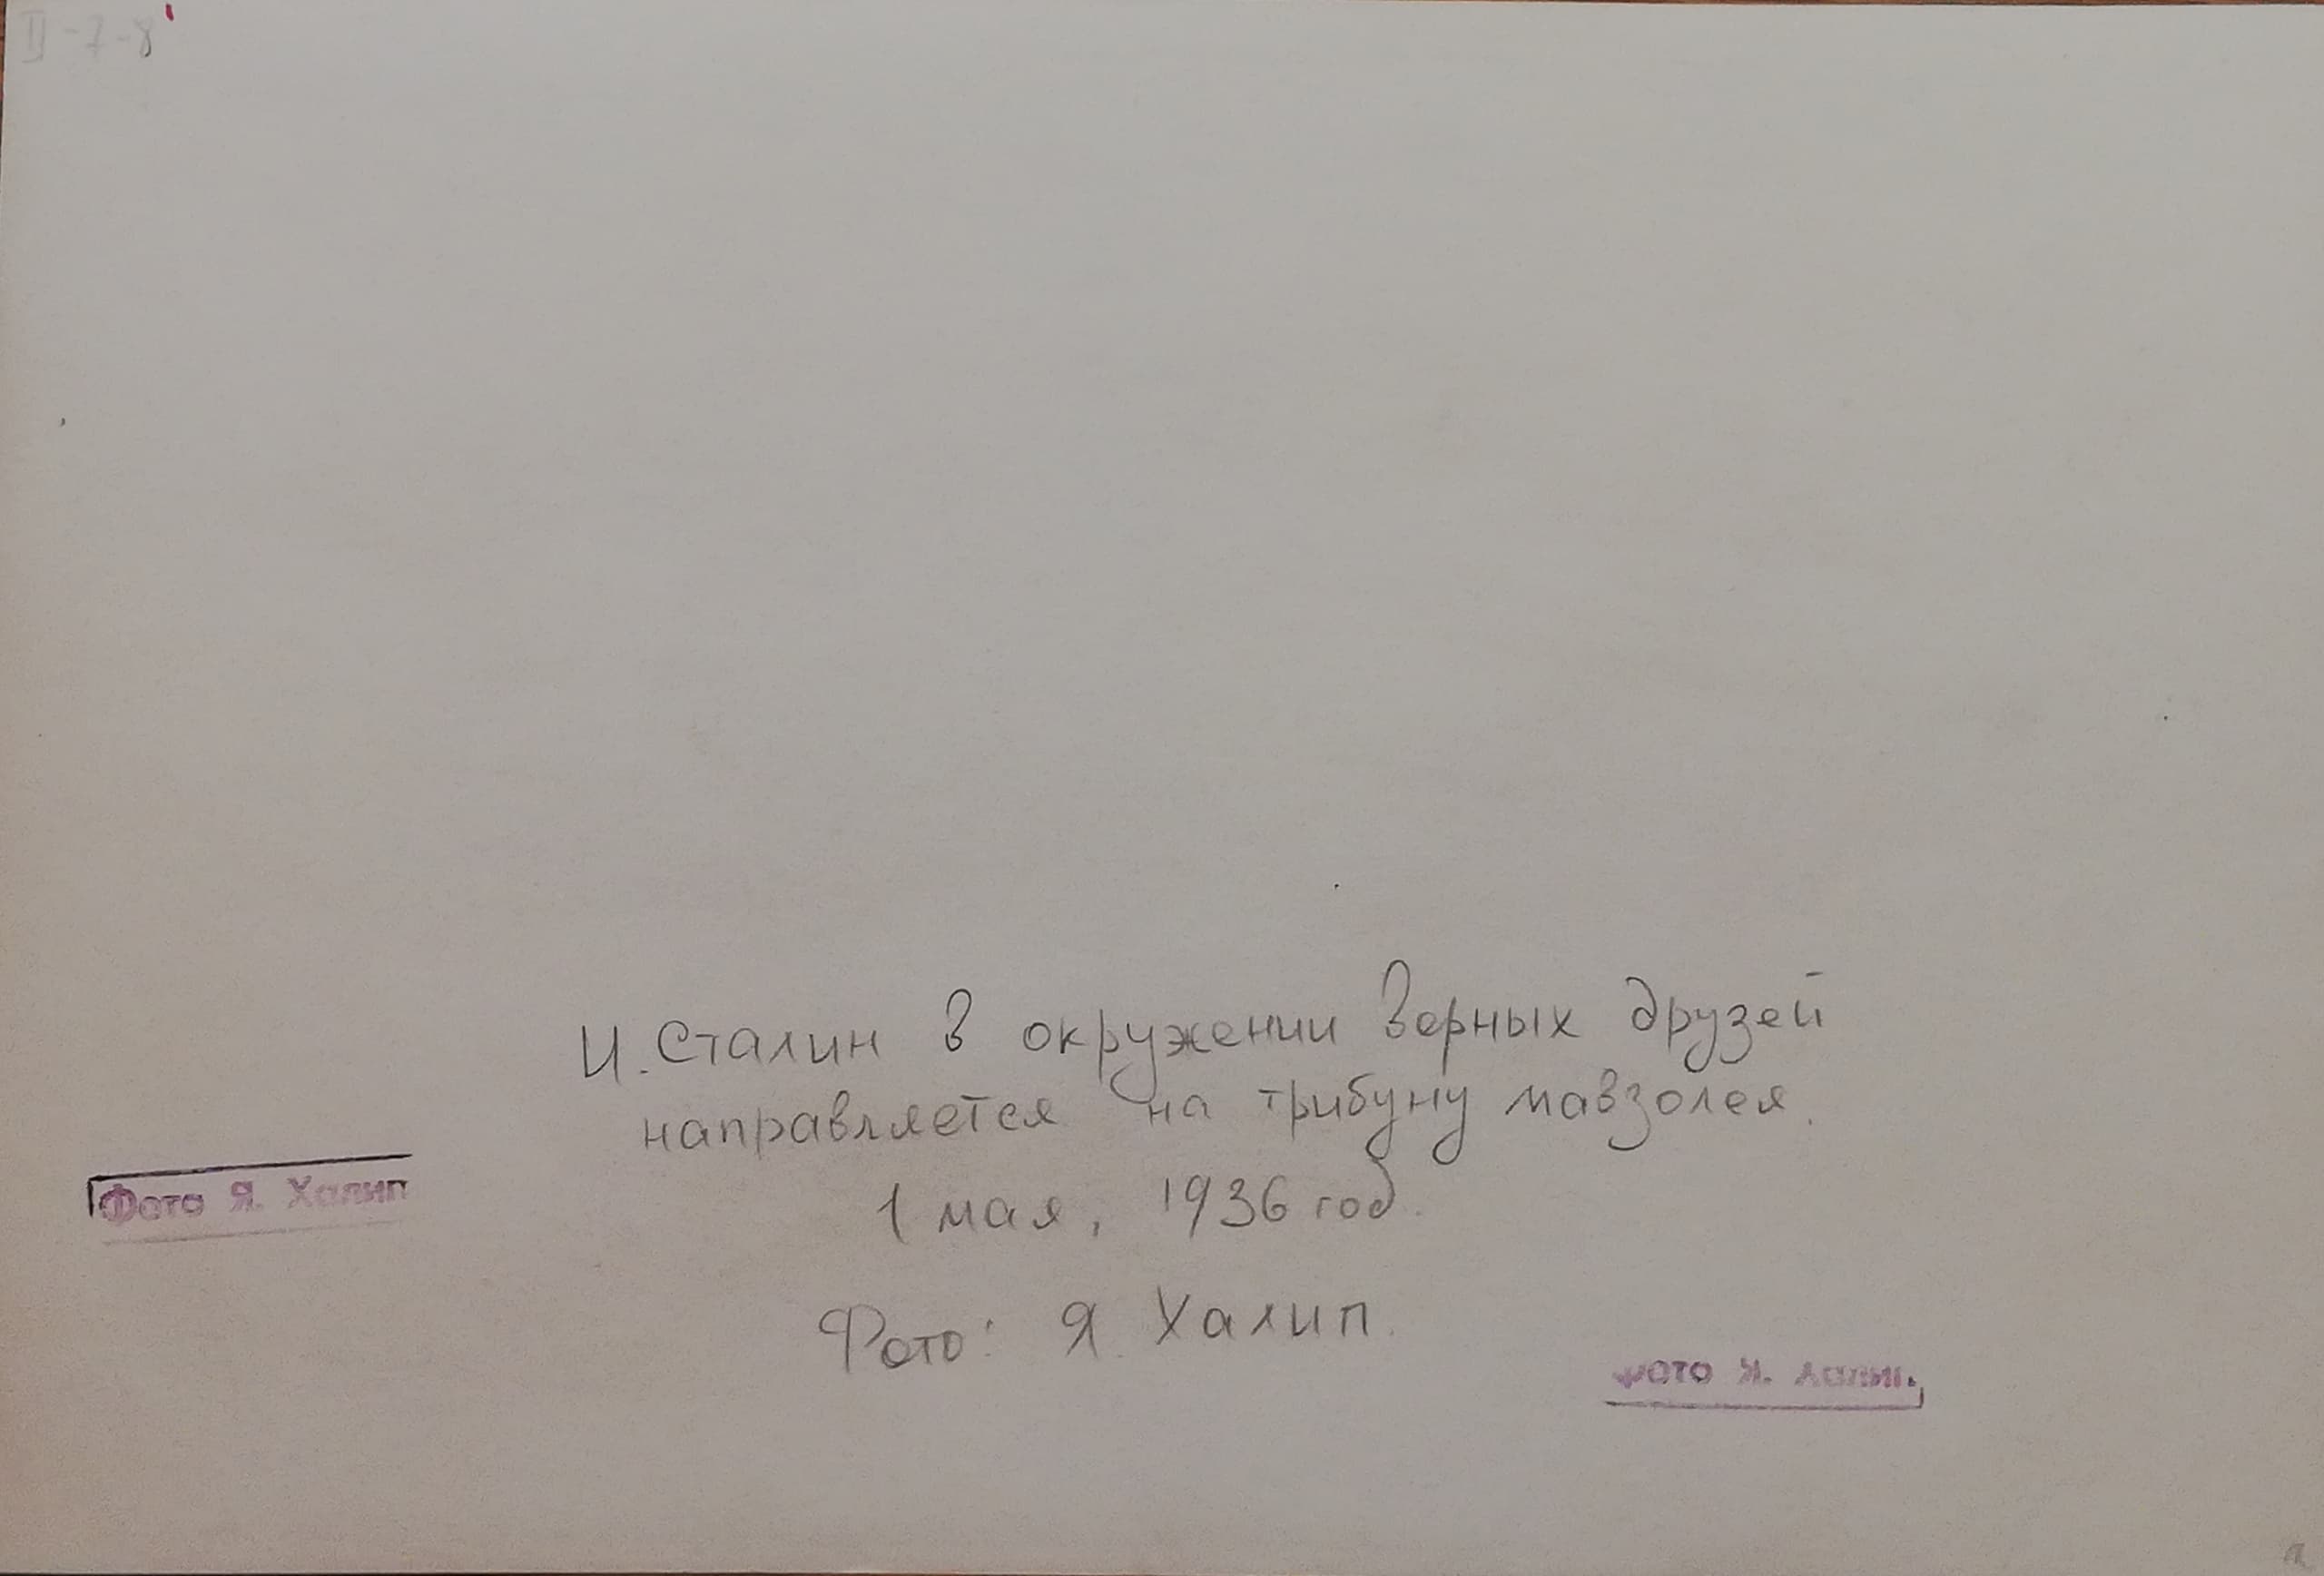 II-7-8
И. Сталин в окружении верных друзей
направляется на трибуну мавзолея.
1 мая, 1936 год.
Фото Я. Халип
Фото: Я. Халип.
Фото Я. Халип.